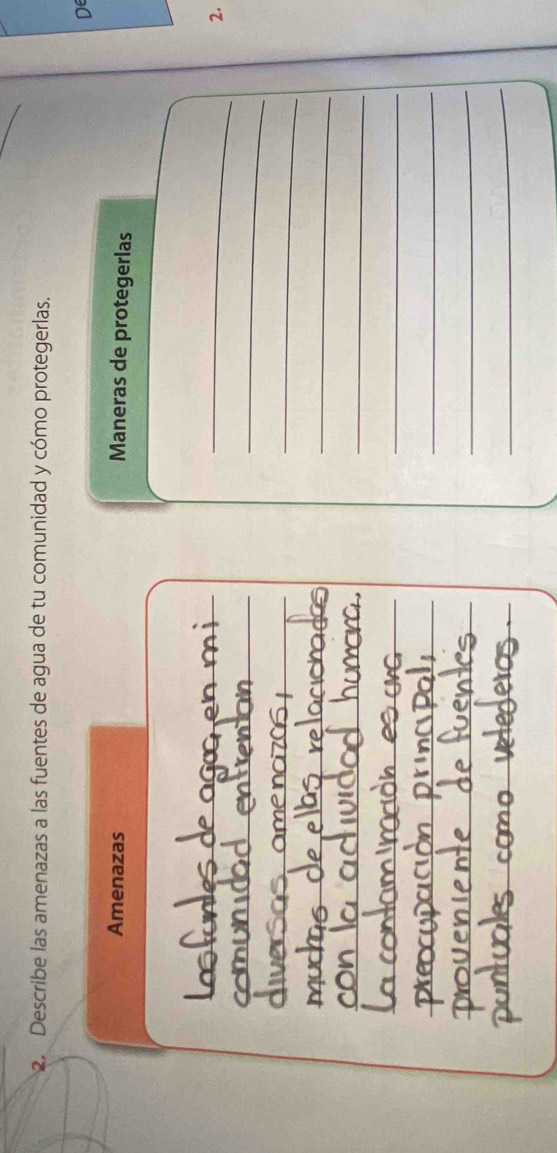 2. Describe las amenazas a las fuentes de agua de tu comunidad y cómo protegerlas.
Amenazas
Las funtes de agua, en mi
comunidad enfrentan
diversas amenazas,
muchas de ellas relacionadas
con la actividad humana.
La contaminación es una
preocupación principal,
proveniente de fuentes
puntuales como vetederos.
Maneras de protegerlas
De
2.